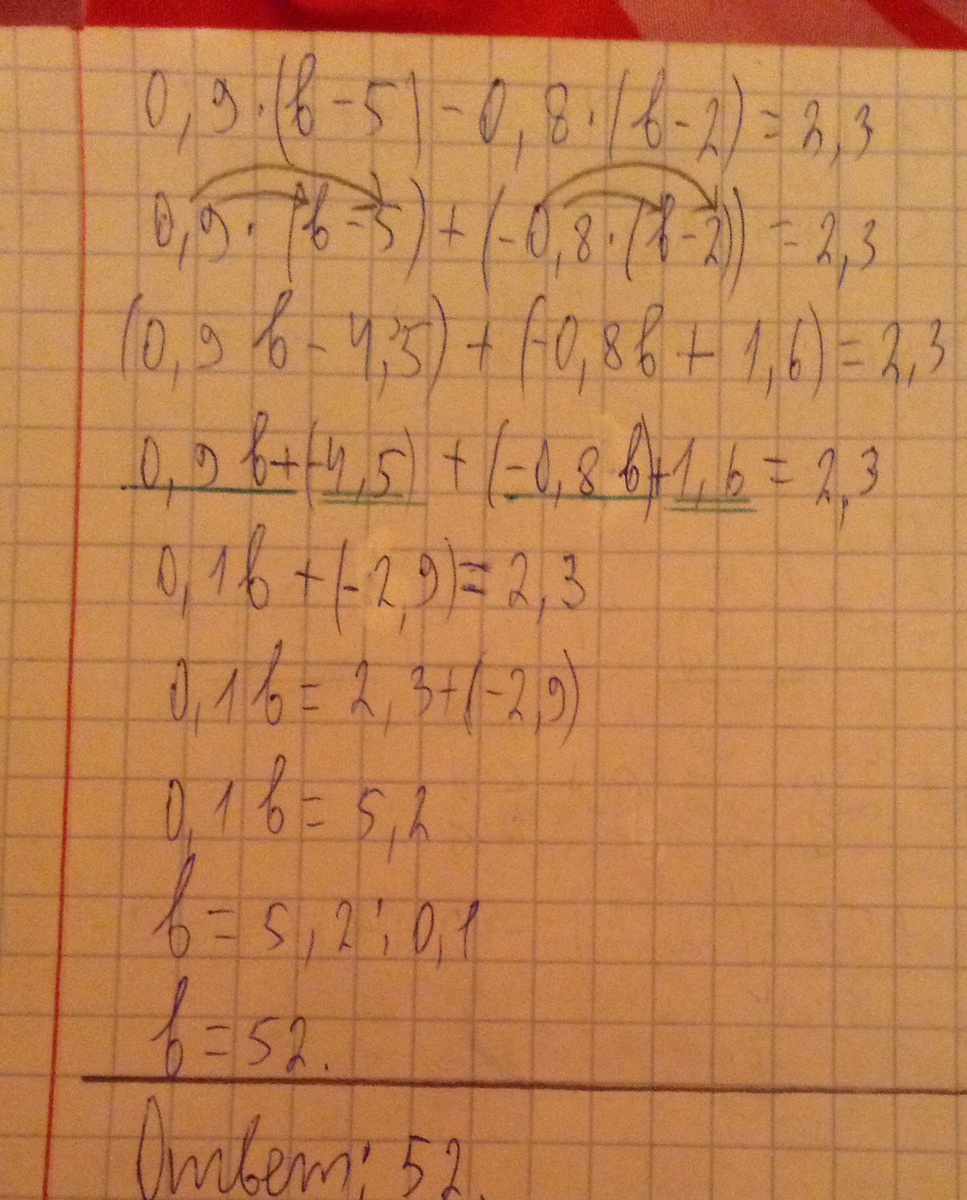 0,9·(b-5)-0,8·(b-2)=2,3
0,9·(b-5)+(-0,8·(b-2))=2,3
(0,9b-4,5)+(-0,8b+1,6)=2,3
0,9b+(-4,5)+(-0,8b)+1,6=2,3
0,1b+(-2,9)=2,3
0,1b=2,3+(-2,9)
0,1b=5,2
b=5,2:0,1
b=52.
Ответ: 52.